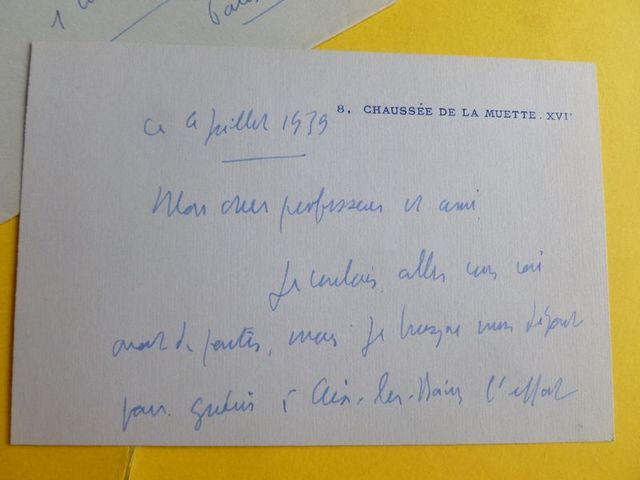 8, CHAUSSÉE DE LA MUETTE. XVIᵉ
ce 4 juillet 1939
Mon cher professeur et ami
Je voulais aller vous voir
avant de partir, mais je brusque mon départ
pour guérir à Aix-les-Bains l'effort